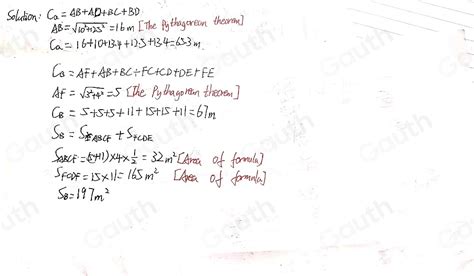 Solution: Ca = AB+AD+BC+BD
AB = √10²+12.5² = 16m [The Pythagorean theorem]
Ca = 16+10+13.4+12.5+13.4=65.3m
CB = AF+AB+BC+FC+CD+DE+FE
AF = √3²+4² = 5 [The Pythagorean theorem]
CB = 5+5+5+11+15+15+11=67m
SB = SABCF + SFCDE
SABCF = (5+11)×4×½ = 32m² [Area of formula]
SFCDF = 15×11 = 165m² [Area of formula]
SB=197m²
Gauth